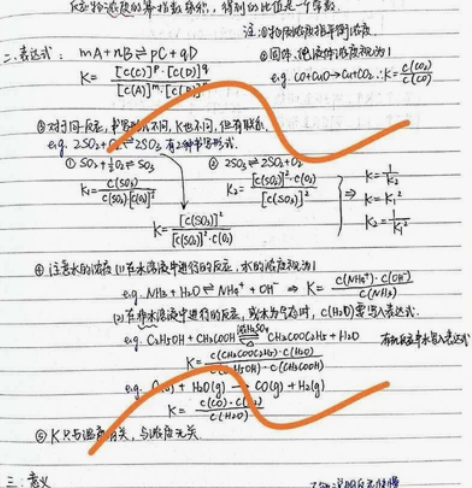 反应物浓度的幂指数乘积，得到的比值是一个常数.
注：①物质浓度指平衡浓度
二. 表达式： mA+nB⇌pC+qD ②固体、纯液体浓度视为1
K= [c(C)]ᵖ·[c(D)]^q / [c(A)]ᵐ·[c(B)]ⁿ e.g. CO+CuO→Cu+CO₂ ∴K= c(CO₂)/c(CO)
③对于同一反应，书写形式不同，K也不同，但有联系.
e.g. 2SO₂+O₂⇌2SO₃ 有2种书写形式.
① SO₂+½O₂⇌SO₃ ② 2SO₃⇌2SO₂+O₂
K₁= c(SO₃) / c(SO₂)·[c(O₂)]^½ K₂= [c(SO₂)]²·c(O₂) / [c(SO₃)]² ⇒ K=1/K₂
K=K₁²
K₂=1/K₁²
K= [c(SO₃)]² / [c(SO₂)]²·c(O₂)
④ 注意水的浓度 (1)在水溶液中进行的反应，水的浓度视为1
e.g. NH₃+H₂O⇌NH₄⁺+OH⁻ ⇒ K= c(NH₄⁺)·c(OH⁻) / c(NH₃)
(2)在非水溶液中进行的反应，或水为气态时，c(H₂O)需写入表达式.
e.g. C₂H₅OH+CH₃COOH ⇌ CH₃COOC₂H₅+H₂O 有机反应中水写入表达式
K= c(CH₃COOC₂H₅)·c(H₂O) / c(C₂H₅OH)·c(CH₃COOH)
e.g. C(s)+H₂O(g) CO(g)+H₂(g)
K= c(CO)·c(H₂) / c(H₂O)
⑤ K只与温度有关，与浓度无关.
三. 意义